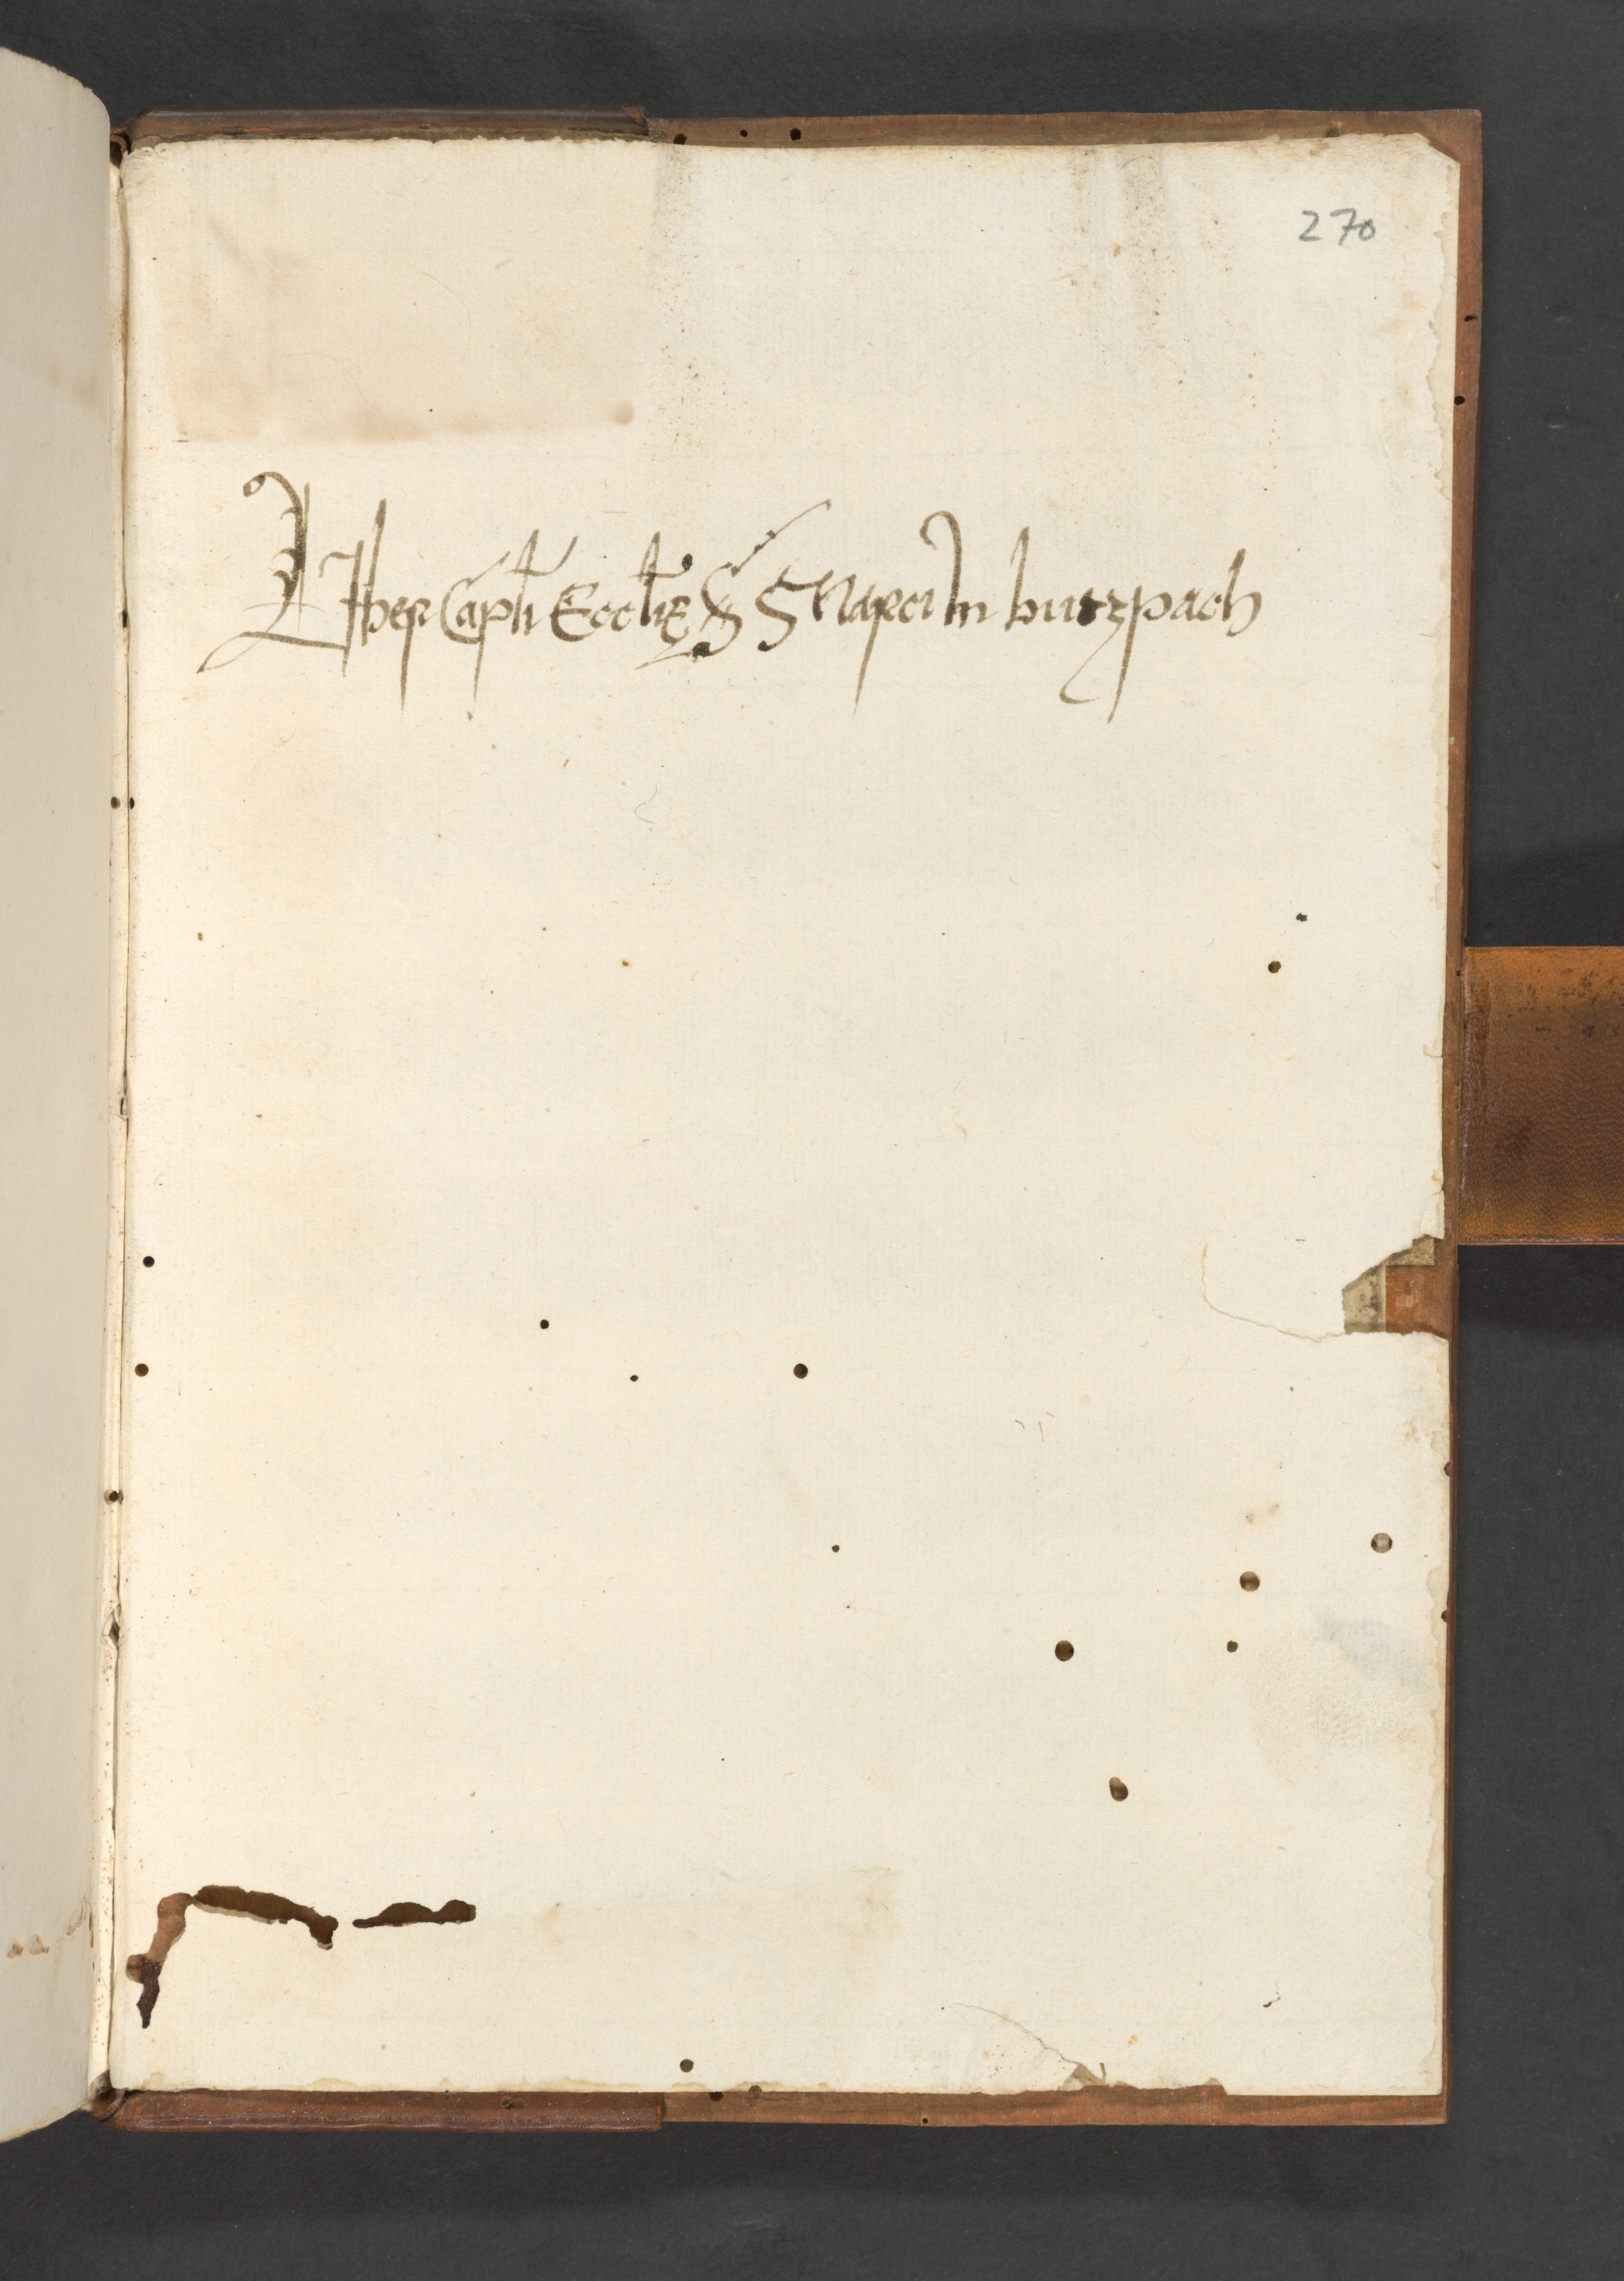 270
LIber Capli Ecclie S Marci In butzpach